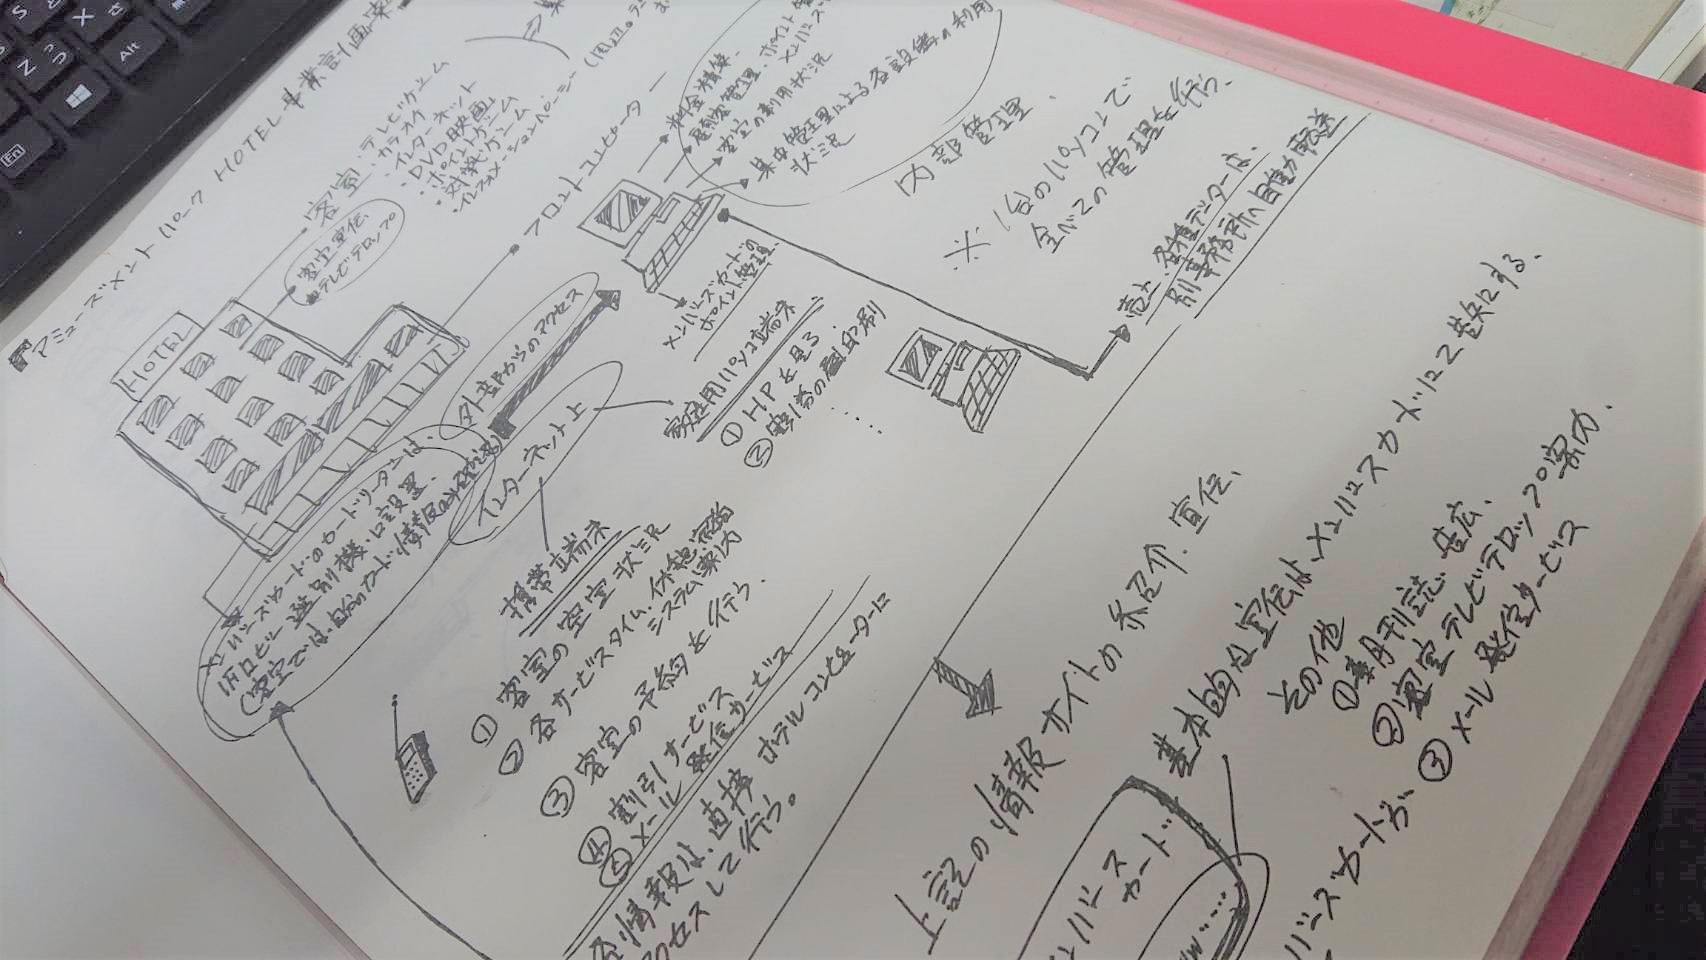 アミューズメントパーク HOTEL事業計画案
客室
・テレビゲーム
・カラオケ
・インターネット
・DVD映画
・ポイントゲーム
・対戦ゲーム
・インフォメーションページ
客室宣伝
テレビテロップ
HOTEL
フロントコンピューター
料金精算
客室の利用状況
集中管理による各設備の利用
状況
内部管理
※1台のパソコンで
全べての管理を行う.
メンバーズカードの
ポイント管理
売上、各種データーは、
別事務所へ自動転送
外部からのアクセス
インターネット上
家庭用パソコン端末
① HPを見る
② 割引券の印刷
メンバーズカードのカードリーダーは、
1Fロビー 選別機・口設置、
(客室では、自分のカード情報のみ確認)
携帯端末
① 客室の空室状況
② 各サービスタイム、休憩宿泊
システム案内
③ 客室の予約を行う.
④ 割引サービス
⑤ メール発信サービス
各情報は、直接ホテルコンピューターに
アクセスして行う。
上記の情報サイトの紹介、宣伝、
基本的な宣伝は、メンバースカードにて告知する.
その他
① 月刊誌、告広、
② 客室テレビテロップの案内.
③ メール発信サービス
メンバース
カード
バーズカードが
Fn
Alt
Z
X
つ
さ